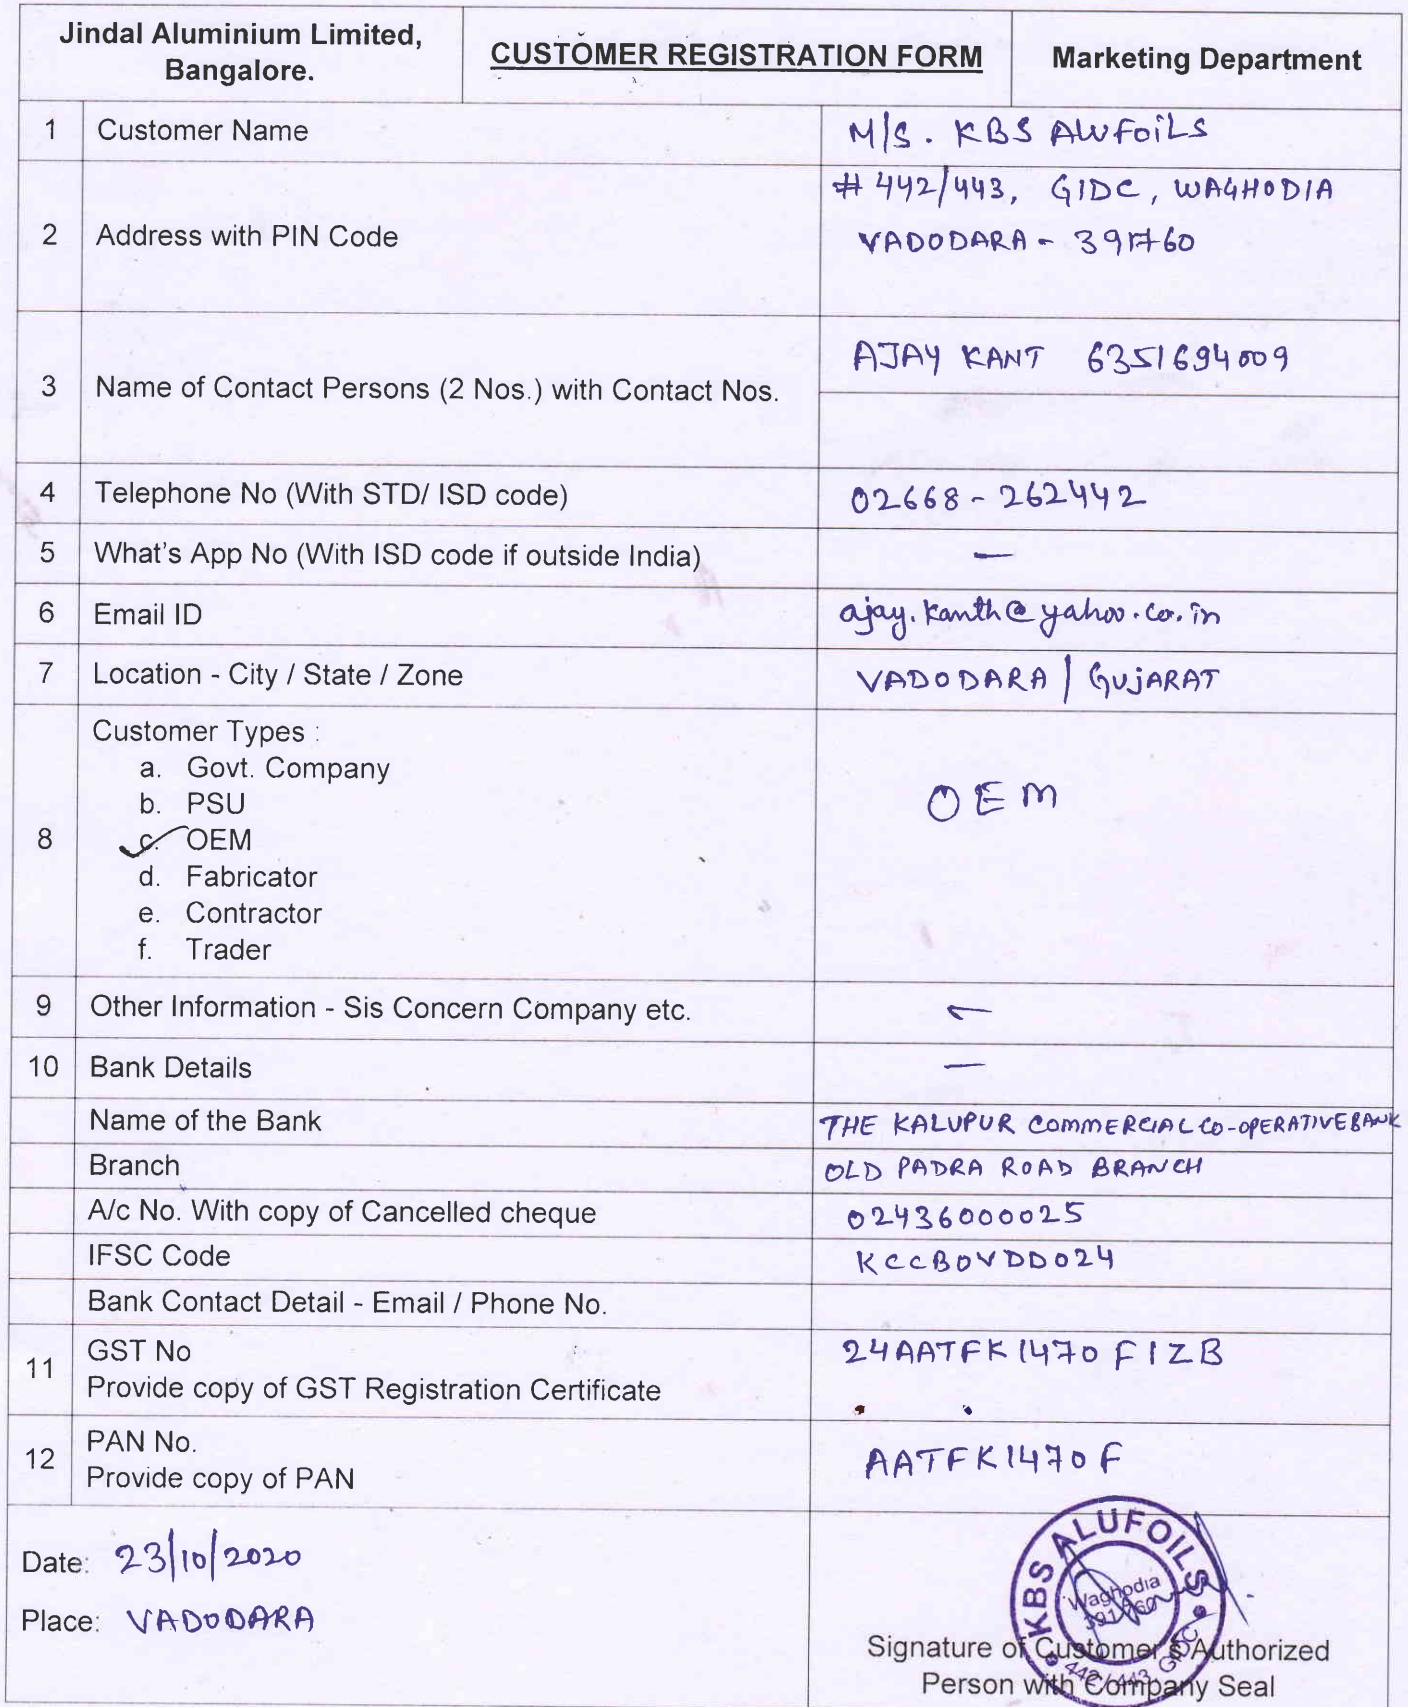 Jindal Aluminium Limited,
Bangalore.
CUSTOMER REGISTRATION FORM
Marketing Department
1 Customer Name M/S. KBS ALUFOILS
2 Address with PIN Code # 442/443, GIDC, WAGHODIA
VADODARA - 391760
3 Name of Contact Persons (2 Nos.) with Contact Nos. AJAY KANT 6351694009
4 Telephone No (With STD/ ISD code) 02668-262442
5 What's App No (With ISD code if outside India) —
6 Email ID ajay.kanth@yahoo.co.in
7 Location - City / State / Zone VADODARA / GUJARAT
8 Customer Types :
a. Govt. Company
b. PSU
c. OEM
d. Fabricator
e. Contractor
f. Trader
OEM
9 Other Information - Sis Concern Company etc. —
10 Bank Details —
Name of the Bank THE KALUPUR COMMERCIAL CO-OPERATIVE BANK
Branch OLD PADRA ROAD BRANCH
A/c No. With copy of Cancelled cheque 02436000025
IFSC Code KCCB0VDD024
Bank Contact Detail - Email / Phone No.
11 GST No 24AATFK1470F1ZB
Provide copy of GST Registration Certificate
12 PAN No. AATFK1470F
Provide copy of PAN
Date: 23/10/2020
Place: VADODARA
KBS ALUFOILS
Waghodia
391760
442/443, GIDC
Signature of Customer's Authorized
Person with Company Seal